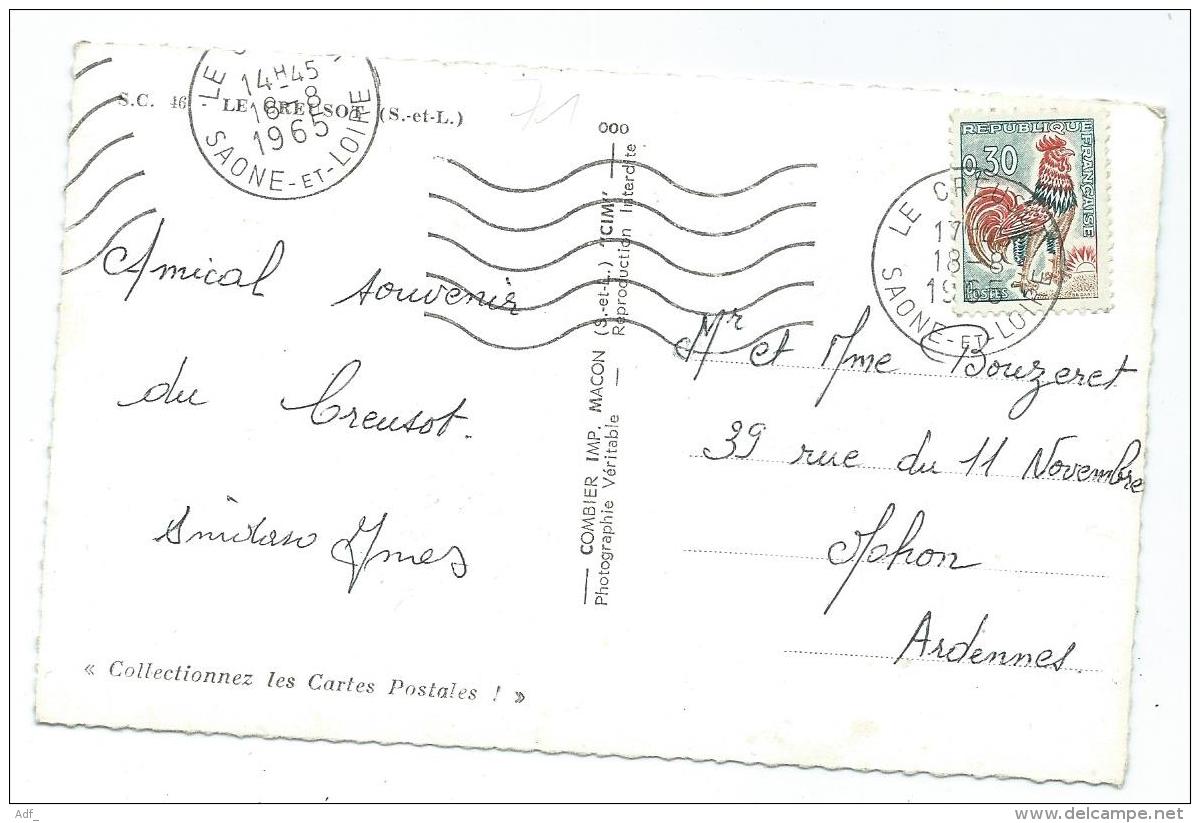 LE
14H45
16-8
1965
SAONE-ET-LOIRE
S.C. 46 LE CREUSOT (S.-et-L.)
71
Amical souvenir
du Creusot.
« Collectionnez les Cartes Postales ! »
000
COMBIER IMP. MACON (S.-et-L.) "CIM"
Photographie Véritable — Reproduction Interdite
REPUBLIQUE FRANÇAISE
0,30
POSTES
LE CREUSOT
17
18-8
1965
SAONE-ET-LOIRE
Mr et Mme Bouzeret
39 rue du 11 Novembre
Ardennes.
Adf_
delcampe.net